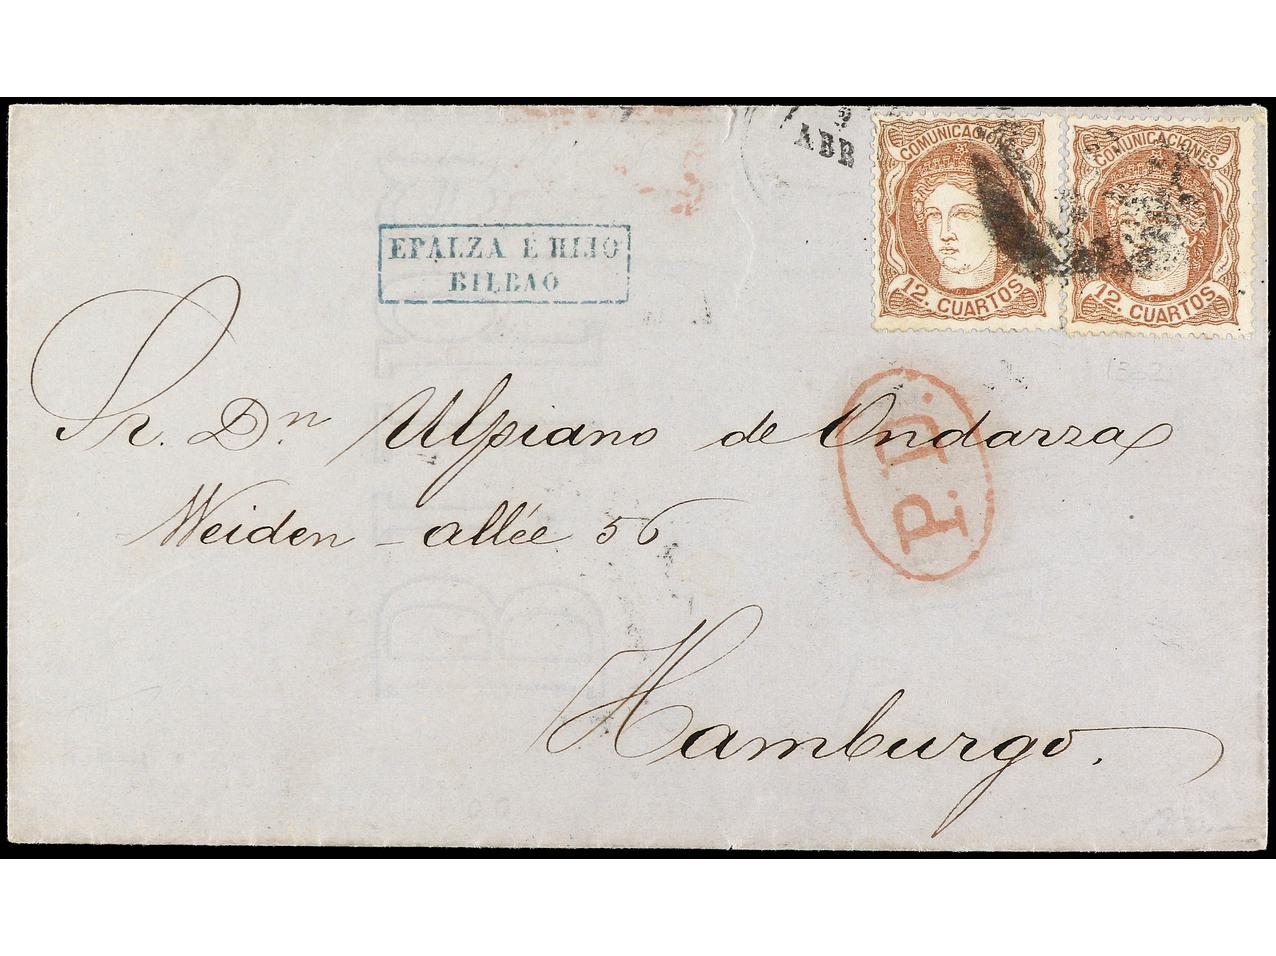 ABR
COMUNICACIONES
12. CUARTOS
COMUNICACIONES
12. CUARTOS
EPALZA É HIJO
BILBAO
Sr. Dn Ulpiano de Ondarza
Weiden-allée 56
P.D.
Hamburgo.